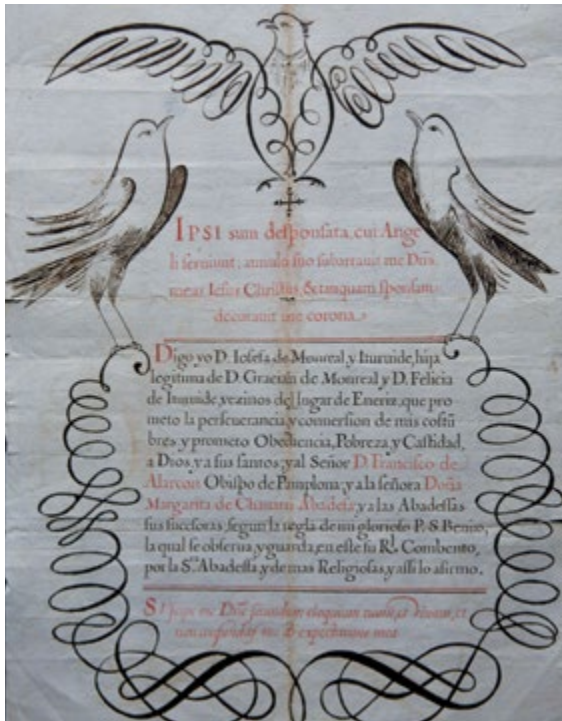 IPSI sum desponsata, cui Ange
li seruiunt; annulo suo subarrauit me Dñs.
meus Iesus Christus, & tanquam sponsam
decorauit me corona.
Digo yo D. Iosefa de Monreal, y Ituruide, hija
legitima de D. Gracian de Monreal y D. Felicia
de Ituruide, vezinos del lugar de Eneriz, que pro
meto la perseuerancia, y conuersion de mis costũ
bres, y prometo Obediencia, Pobreza, y Castidad,
a Dios, y a sus santos; y al Señor D. Francisco de
Alarcon Obispo de Pamplona; y a la señora Doña
Margarita de Abadesa, y a las Abadessas
sus sucesoras, segun la regla de mi glorioso P. S. Benito,
la qual se obserua, y guarda, en este su Rl. Combento,
por la Sra. Abadessa, y demas Religiosas, y assi lo afirmo.
me Dñe secundum eloquium tuum, et viuam, et
non confundas me ab expectatione mea